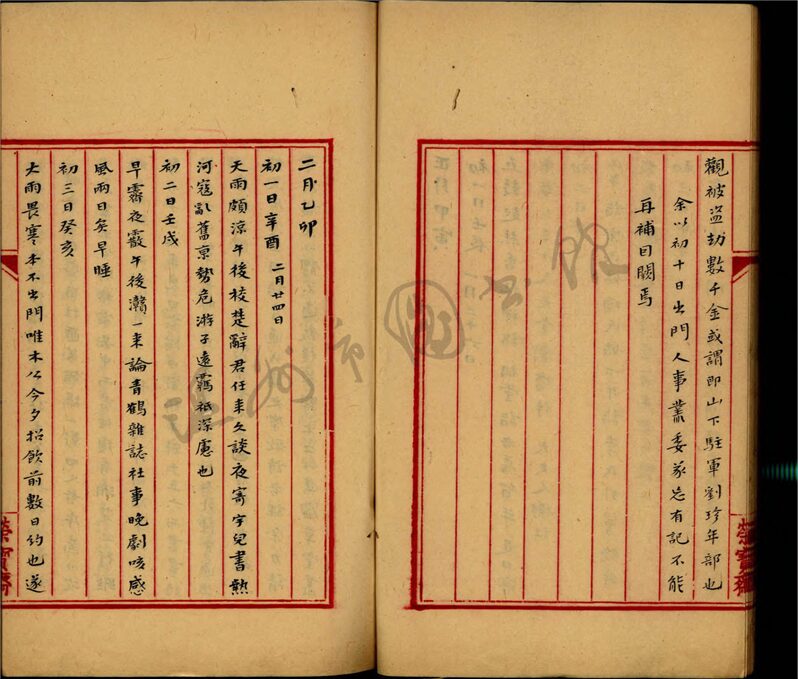 觀被盜劫數千金或謂即山下駐軍劉珍年部也
余以初十日出門人事叢委遂忘有記不能
再補日闕焉
榮寶齋
二月乙卯
初一日辛酉 二月廿四日
天雨頗涼午後校楚辭君任來久談夜寄宇兒書熱
河寇亂舊京勢危游子遠羈祇深慮也
初二日壬戌
早霽夜霰午後瀚一來論青鶴雜誌社事晚劇咳感
風雨日矣早睡
初三日癸亥
大雨畏寒本不出門唯木公今夕招飲前數日約也遂
榮寶齋
溫州市圖書館